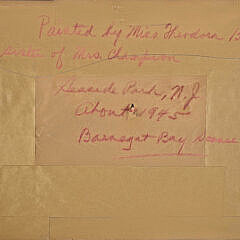 Painted by Miss Theodora B
sister of Mrs. Champion
Seaside Park, N.J
About 1945
Barnegat Bay Scene